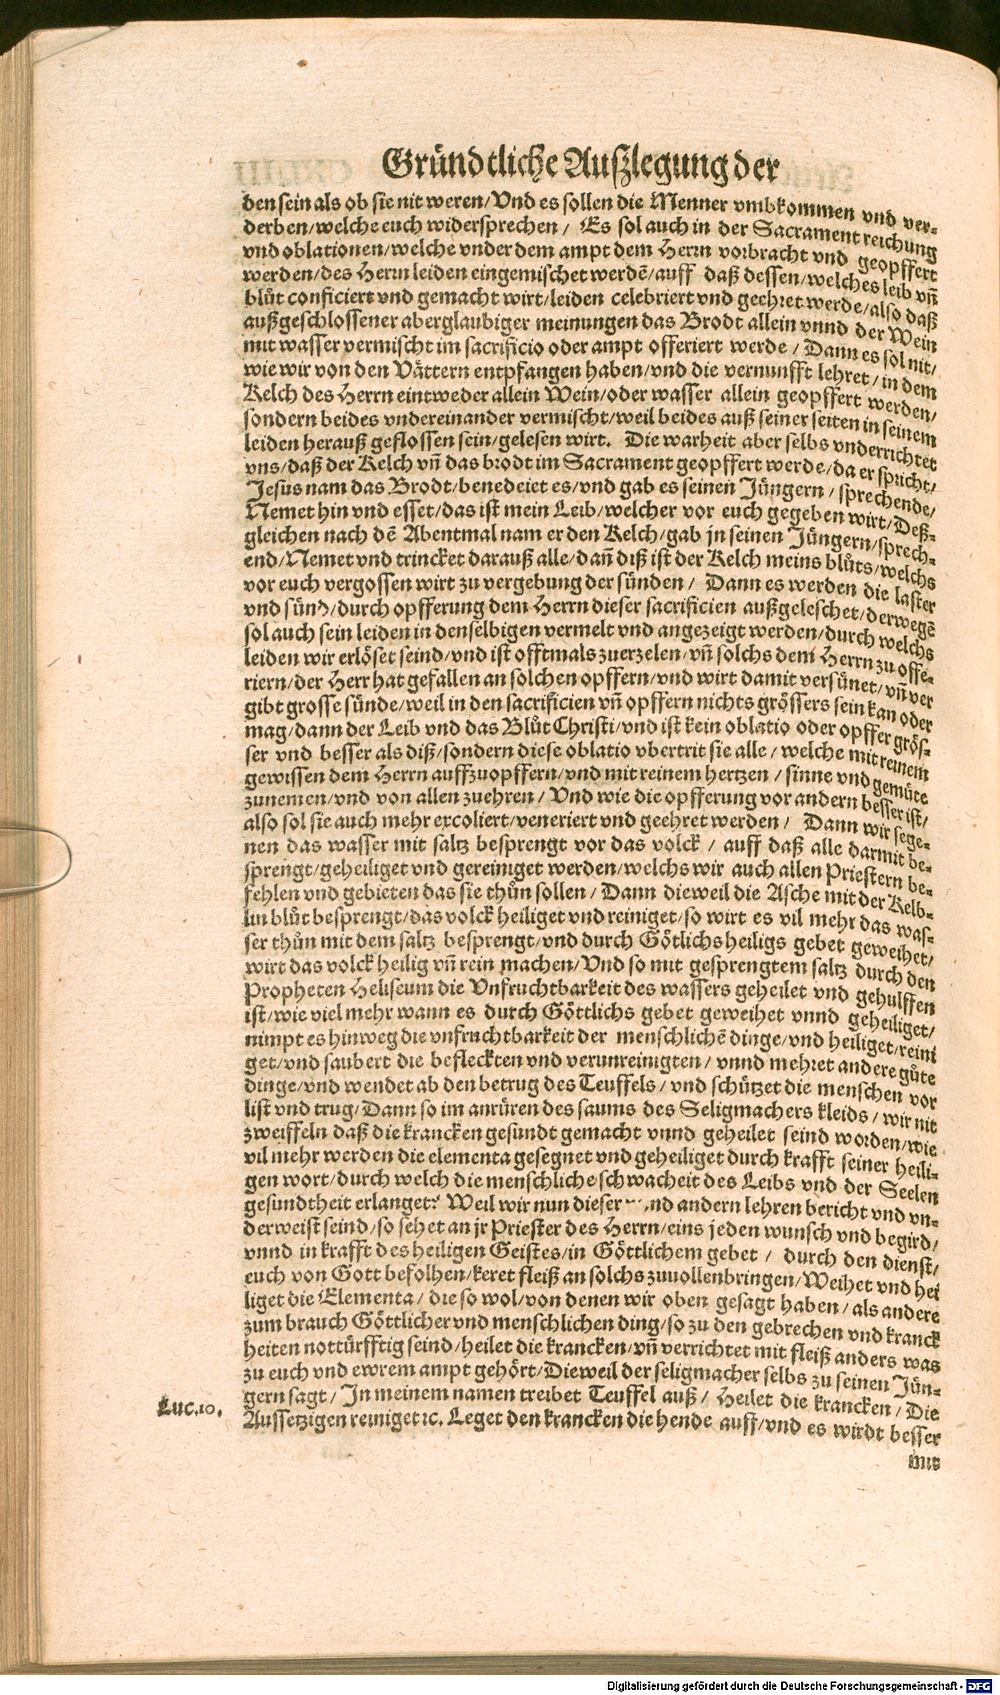 Gründtliche Außlegung der
den sein als ob sie nit weren/ Vnd es sollen die Menner vmbkommen vnd ver-
derben/welche euch widersprechen/ Es sol auch in der Sacrament reichung
vnd oblationen/welche vnder dem ampt dem Herrn vorbracht vnd geopffert
werden/des Herrn leiden eingemischet werdē/auff daß dessen/welches leib vñ
blůt conficiert vnd gemacht wirt/leiden celebriert vnd geehret werde/also daß
außgeschlossener aberglaubiger meinungen das Brodt allein vnnd der Wein
mit wasser vermischt im sacrificio oder ampt offeriert werde/ Dann es sol nit/
wie wir von den Vättern entpfangen haben/vnd die vernunfft lehret/in dem
Kelch des Herrn eintweder allein Wein/oder wasser allein geopffert werden/
sondern beides vndereinander vermischt/weil beides auß seiner seiten in seinem
leiden herauß geflossen sein/gelesen wirt. Die warheit aber selbs vnderrichtet
vns/daß der Kelch vñ das brodt im Sacrament geopffert werde/da er spricht/
Jesus nam das Brodt/benedeiet es/vnd gab es seinen Jüngern/sprechende/
Nemet hin vnd esset/das ist mein Leib/welcher vor euch gegeben wirt/Deß-
gleichen nach dē Abentmal nam er den Kelch/gab jn seinen Jüngern/sprech-
end/Nemet vnd trincket darauß alle/dañ diß ist der Kelch meins blůts/welchs
vor euch vergossen wirt zu vergebung der sünden/ Dann es werden die laster
vnd sünd/durch opfferung dem Herrn dieser sacrificien außgeleschet/derwegē
sol auch sein leiden in denselbigen vermelt vnd angezeigt werden/durch welchs
leiden wir erlöset seind/vnd ist offtmals zuerzelen/vñ solchs dem Herrn zu offe-
riern/der Herr hat gefallen an solchen opffern/vnd wirt damit versünet/vñ ver
gibt grosse sünde/weil in den sacrificien vñ opffern nichts grössers sein kan oder
mag/dann der Leib vnd das Blůt Christi/vnd ist kein oblatio oder opffer grös-
ser vnd besser als diß/sondern diese oblatio vbertrit sie alle/welche mit reinem
gewissen dem Herrn auffzuopffern/vnd mit reinem hertzen/sinne vnd gemüte
zunemen/vnd von allen zuehren/ Vnd wie die opfferung vor andern besser ist/
also sol sie auch mehr excoliert/veneriert vnd geehret werden/ Dann wir sege-
nen das wasser mit saltz besprengt vor das volck/ auff daß alle darmit be-
sprengt/geheiliget vnd gereiniget werden/welchs wir auch allen Priestern be-
fehlen vnd gebieten das sie thůn sollen/ Dann dieweil die Asche mit der Kelb-
lin blůt besprengt/das volck heiliget vnd reiniget/so wirt es vil mehr das was-
ser thůn mit dem saltz besprengt/vnd durch Götlichs heiligs gebet geweihet/
wirt das volck heilig vñ rein machen/Vnd so mit gesprengtem saltz durch den
Propheten Heliseum die Vnfruchtbarkeit des wassers geheilet vnd gehulffen
ist/wie viel mehr wann es durch Göttlichs gebet geweihet vnnd geheiliget/
nimpt es hinweg die vnfruchtbarkeit der menschlichē dinge/vnd heiliget/reini
get/vnd saubert die befleckten vnd verunreinigten/vnnd mehret andere gůte
dinge/vnd wendet ab den betrug des Teuffels/vnd schützet die menschen vor
list vnd trug/Dann so im anrüren des saums des Seligmachers kleids/wir nit
zweiffeln daß die krancken gesundt gemacht vnnd geheilet seind worden/wie
vil mehr werden die elementa gesegnet vnd geheiliget durch krafft seiner heili-
gen wort/durch welch die menschliche schwacheit des Leibs vnd der Seelen
gesundtheit erlanget? Weil wir nun dieser vnd andern lehren bericht vnd vn-
derweist seind/so sehet an jr Priester des Herrn/eins jeden wunsch vnd begird/
vnnd in krafft des heiligen Geistes/in Göttlichem gebet/ durch den dienst/
euch von Gott befolhen/keret fleiß an solchs zuuollenbringen/Weihet vnd hei
liget die Elementa/die so wol/von denen wir oben gesagt haben/als andere
zum brauch Göttlicher vnd menschlichen ding/so zu den gebrechen vnd kranck
heiten nottürfftig seind/heilet die krancken/vñ verrichtet mit fleiß anders was
zu euch vnd ewrem ampt gehört/Dieweil der seligmacher selbs zu seinen Jün-
gern sagt/ In meinem namen treibet Teuffel auß/ Heilet die krancken/Die
Luc.10. Aussetzigen reiniget ꝛc. Leget den krancken die hende auff/vnd es wirdt besser
mit
Digitalisierung gefördert durch die Deutsche Forschungsgemeinschaft - DFG